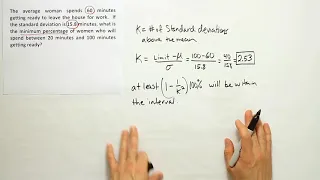 The average woman spends 60 minutes
getting ready to leave the house for work. If
the standard deviation is 15.8 minutes, what is
the minimum percentage of women who will
spend between 20 minutes and 100 minutes
getting ready?
K = # of Standard deviations
above the mean
K = Limit - μ / σ = 100-60 / 15.8 = 40 / 15.8 = 2.53
at least (1 - 1/K²)100% will be within
the interval